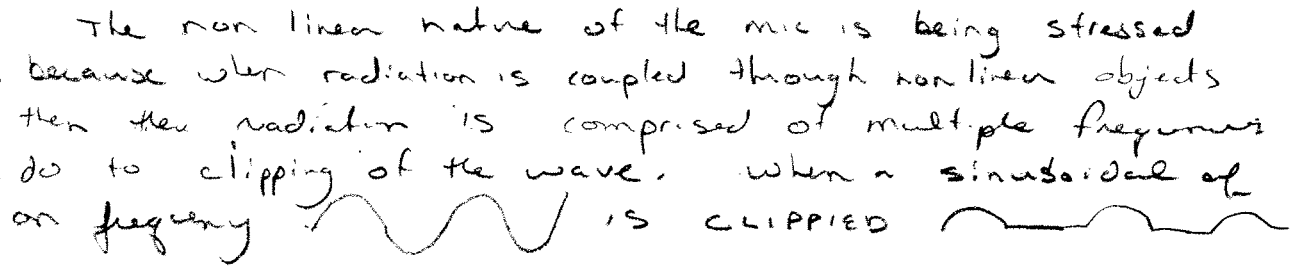 The non linear nature of the mic is being stressed
because when radiation is coupled through non linear objects
then the radiation is comprised of multiple frequencies
do to clipping of the wave. When a sinusoidal of
on frequency is CLIPPIED